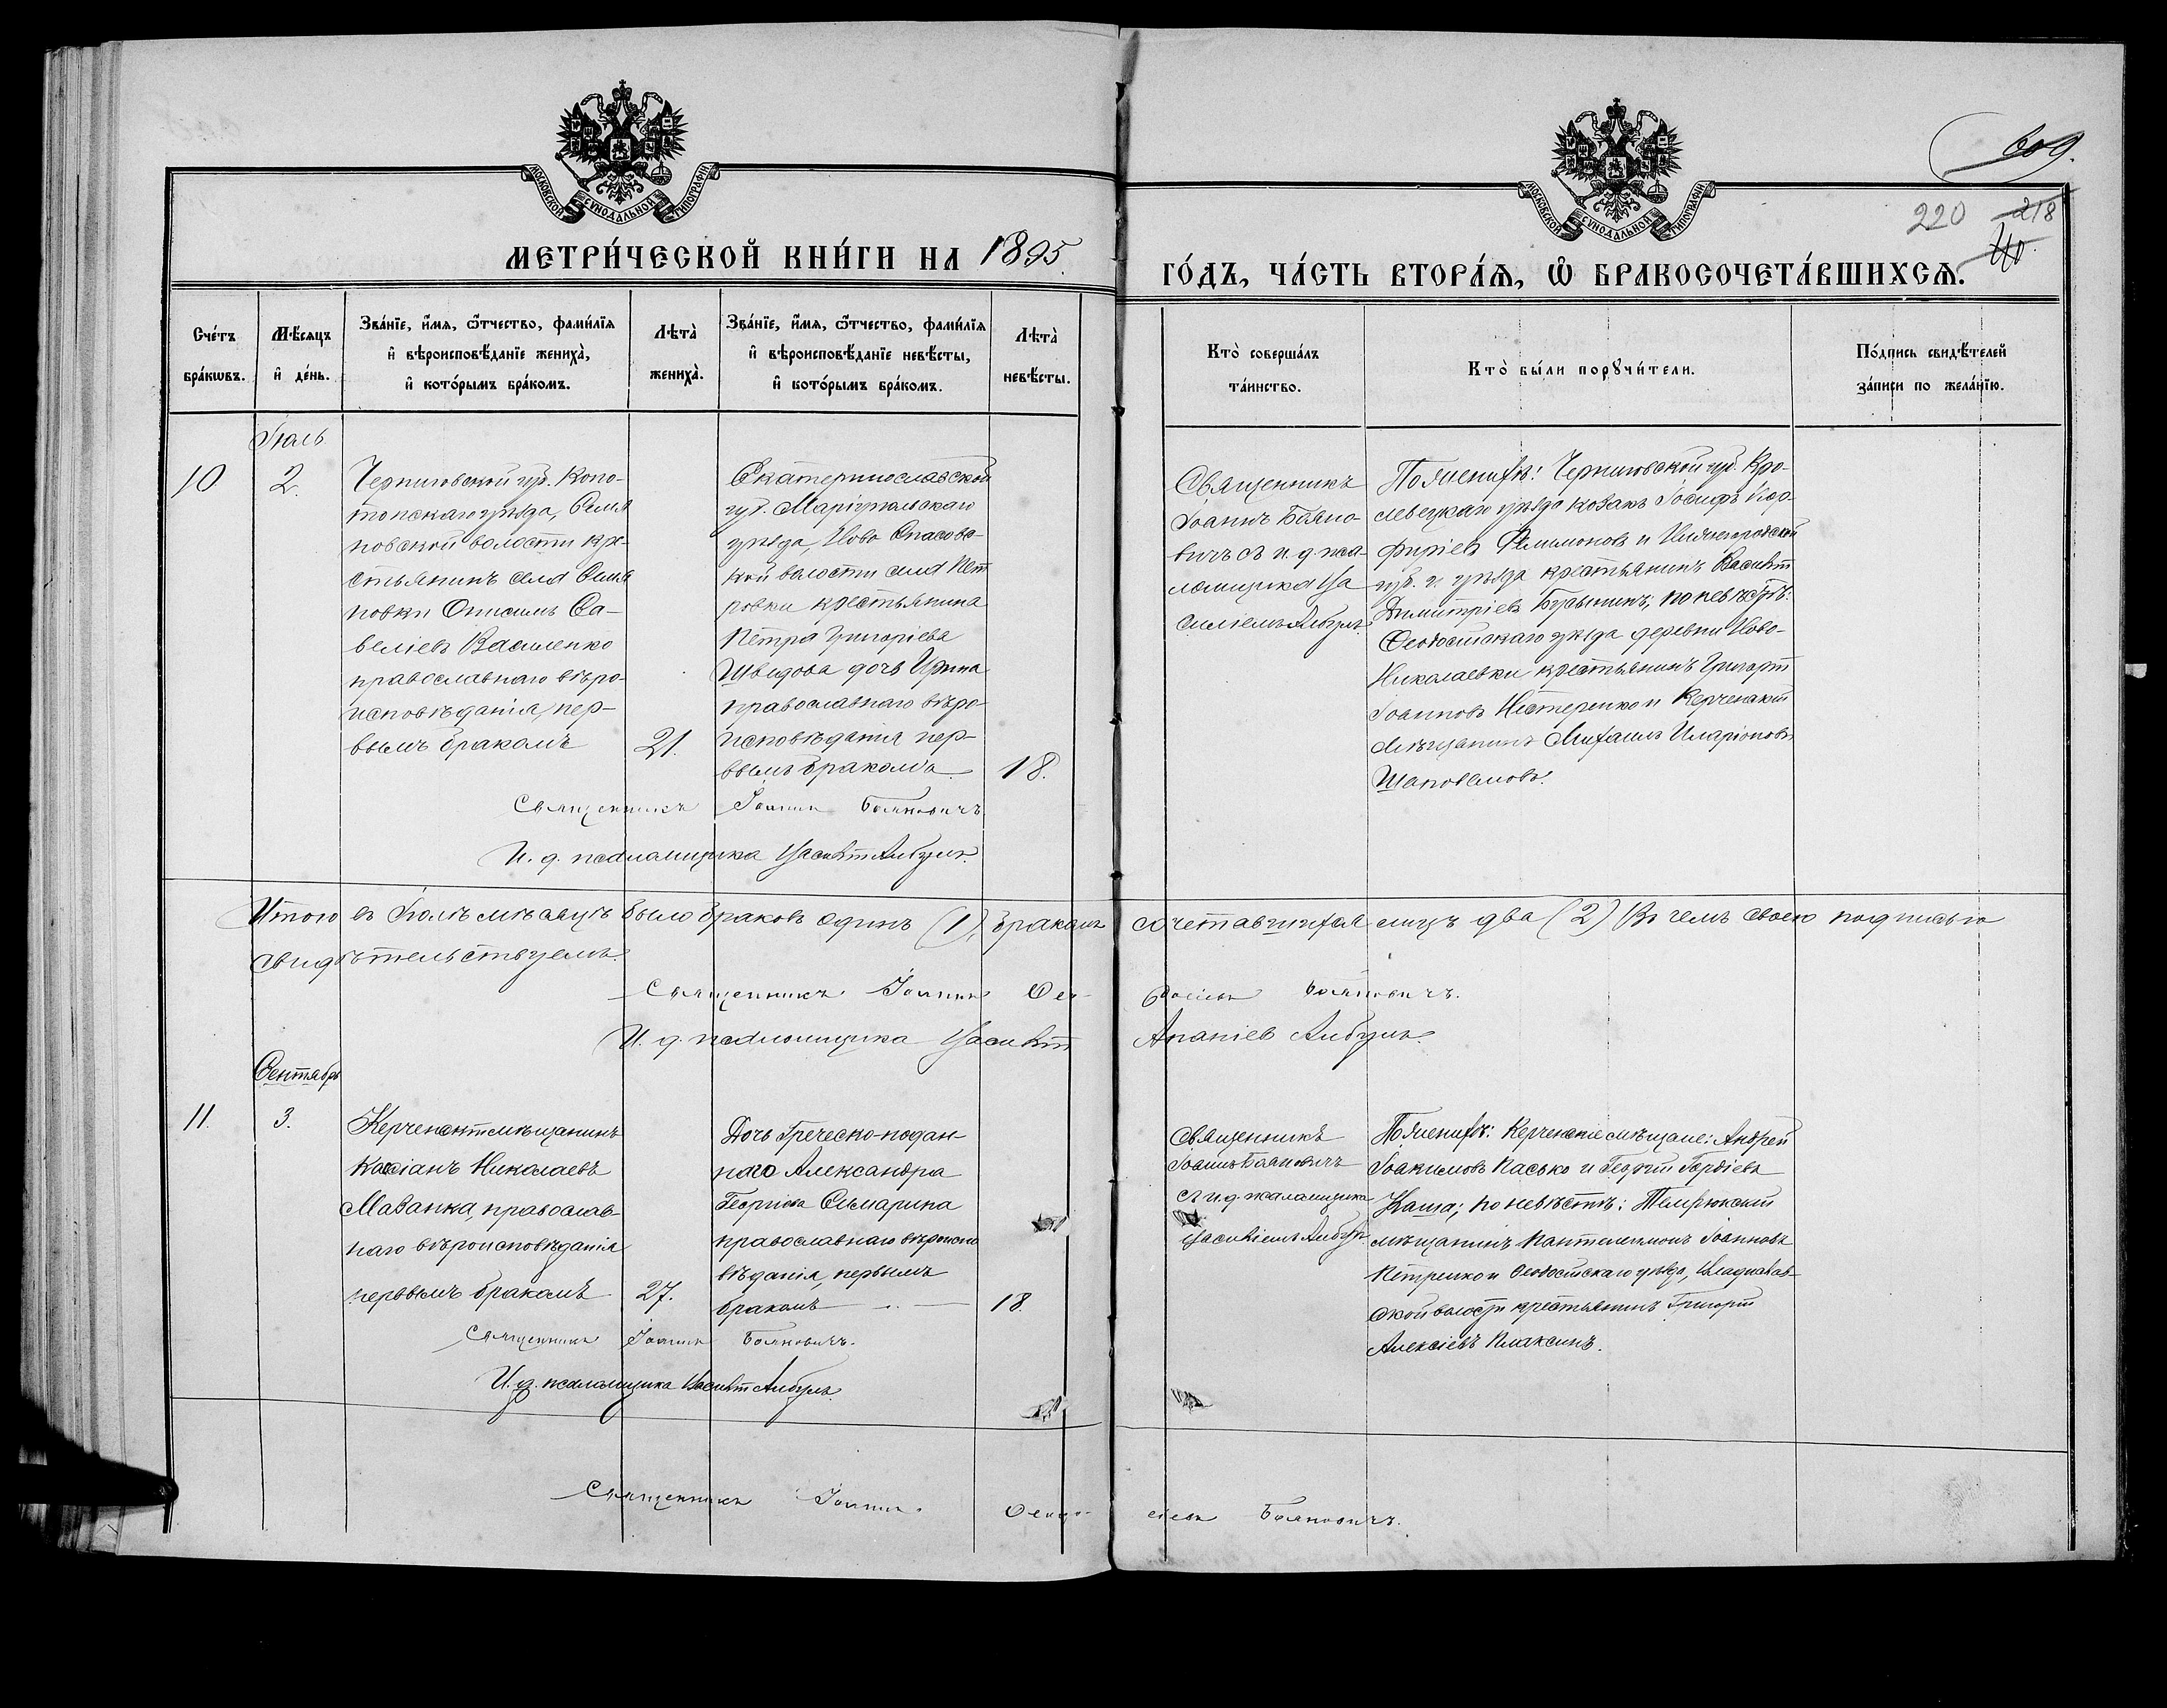 609.
220 218
МОСКОВСКОЙ СѴНОДАЛЬНОЙ ТИПОГРАФІИ
МОСКОВСКОЙ СѴНОДАЛЬНОЙ ТИПОГРАФІИ
МЕТРИ́ЧЕСКОЙ КНИ́ГИ НА 1895.
ГО́ДЪ, ЧА́СТЬ ВТОРА́Ѧ, Ѽ БРАКОСОЧЕТА́ВШИХСѦ.
Сче́тъ бра́кѡвъ.
Мѣ́сяцъ и҆ де́нь.
Зва́нїе, и҆́мя, ѻ҆́тчество, фами́лїя
и҆ вѣроисповѣ́данїе жениха̀,
и҆ кото́рымъ бра́комъ.
Лѣта̀ жениха̀.
Зва́нїе, и҆́мя, ѻ҆́тчество, фами́лїя
и҆ вѣроисповѣ́данїе невѣ́сты,
и҆ кото́рымъ бра́комъ.
Лѣта̀ невѣ́сты.
Кто̀ соверша́лъ та́инство.
Кто̀ бы́ли порꙋчи́тели.
По́дпись свидѣ́телей
за́писи по жела́нїю.
Іюль
10
2.
Черниговской губ. Коно-
топскаго уѣзда,
новской волости кре-
стьянинъ села
новки Онисимъ Са-
веліевъ Василенко
православнаго вѣро-
исповѣданія, пер-
вымъ бракомъ
21.
Екатеринославской
губ. Маріупольскаго
уѣзда, Ново Спасовс-
кой волости села Пет
ровки крестьянина
Петра Григоріева
Шведова дочь Ирина
православнаго вѣро
исповѣданія пер-
вымъ бракомъ
18.
Священникъ
Іоаннъ Баяно-
вичъ съ и. д. пса-
ломщика Ва
силіемъ Албулъ.
По женихѣ: Черниговской губ. Кро-
левецкаго уѣзда козакъ Іосифъ Пор-
фиріевъ Филимоновъ и Нижегородской
губ. и уѣзда крестьянинъ Василій
Димитріевъ; по невѣстѣ:
Ѳеодосійскаго уѣзда деревни Ново-
Николаевки крестьянинъ Григорій
Іоанновъ Нестеренко и Керченскій
мѣщанинъ Михаилъ Иларіоновъ
Шаповаловъ.
Священникъ Іоаннъ Баяновичъ
И. д. псаломщика Василій Албулъ.
Итого въ Іюлѣ мѣсяцѣ было браковъ одинъ (1), бракомъ сочетавшихся лицъ два (2) Въ чемъ своею подписью
свидѣтельствуемъ.
Священникъ Іоаннъ Ѳео- досіевъ Баяновичъ.
И. д. псаломщика Василій Ананіевъ Албулъ.
Сентябрь
11.
3.
Керченскій мѣщанинъ
Касіанъ Николаевъ
Мазанка, православ-
наго вѣроисповѣданія
первымъ бракомъ
27.
Дочь Греческо-подан-
наго Александра
Георгіева
православнаго вѣроиспо
вѣданія, первымъ
бракомъ
18.
Священникъ
Іоаннъ Баяновичъ
съ и. д. псаломщика
Василіемъ Албулъ.
По женихѣ: Керченскіе мѣщане: Андрей
Іоакимовъ Пасько и Георгій Гордіевъ
Каша; по невѣстѣ: Темрюкскій
мѣщанинъ Пантелеимонъ Іоанновъ
Петренко и Ѳеодосійскаго уѣзда, Владислав-
ской волости крестьянинъ Григорій
Алексіевъ Плаксинъ.
Священникъ Іоаннъ Баяновичъ.
И. д. псаломщика Василій Албулъ.
Священникъ Іоаннъ Ѳеодо- сіевъ Баяновичъ.